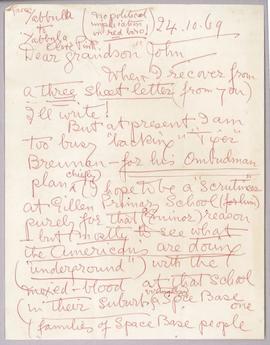 (No political
implication
in red biro)
24.10.69
Yabbulla
to
Yabbula
Dear Grandson John
When I recover from
a three sheet letter (from you)
I'll write!
But at present I am
too busy "backing" "Tiger"
Brennan - for his Ombudman
plan (I hope to be a "scrutineer"
chiefly
at Gillen Primary School (for him)
purely for that (minor) reason
- but mostly to see what
the Americans are doing
("underground") with the
mixed-blood at that School
(in their suburb) a Space Base one
(families of Space Base people